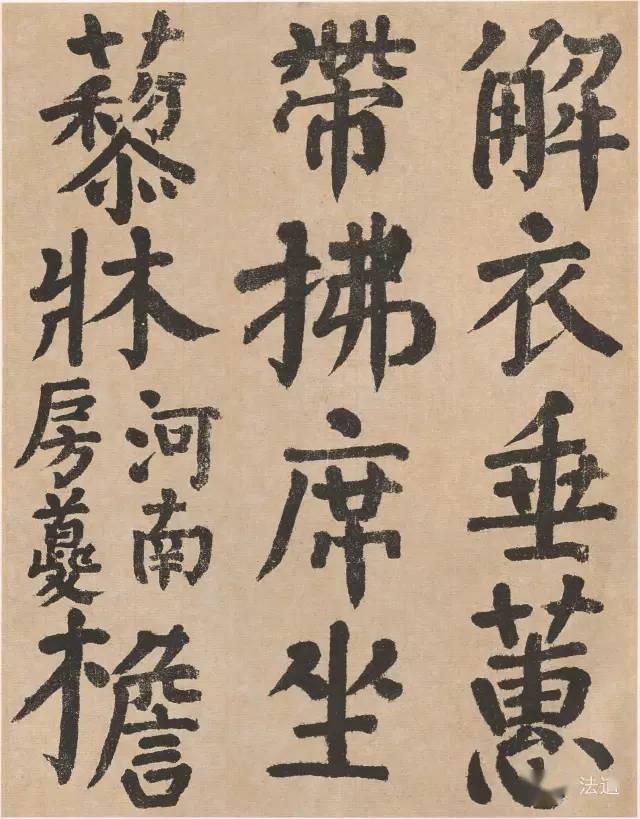 解衣垂蕙
帶拂席坐
藜牀
河南
房夔
檐